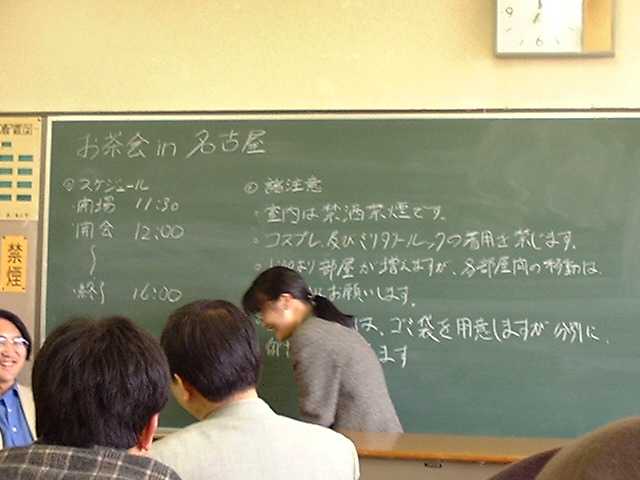 お茶会in名古屋
◎スケジュール
開場 11:30
開会 12:00
終了 16:00
◎ 諸注意
・室内は禁酒禁煙です。
・コスプレ及びミリタリールックの着用を禁じます。
より部屋が増えますが、各部屋間の移動は、
お願いします。
は、ゴミ袋を用意しますが分別に、
ます
配置図
禁煙
9
6